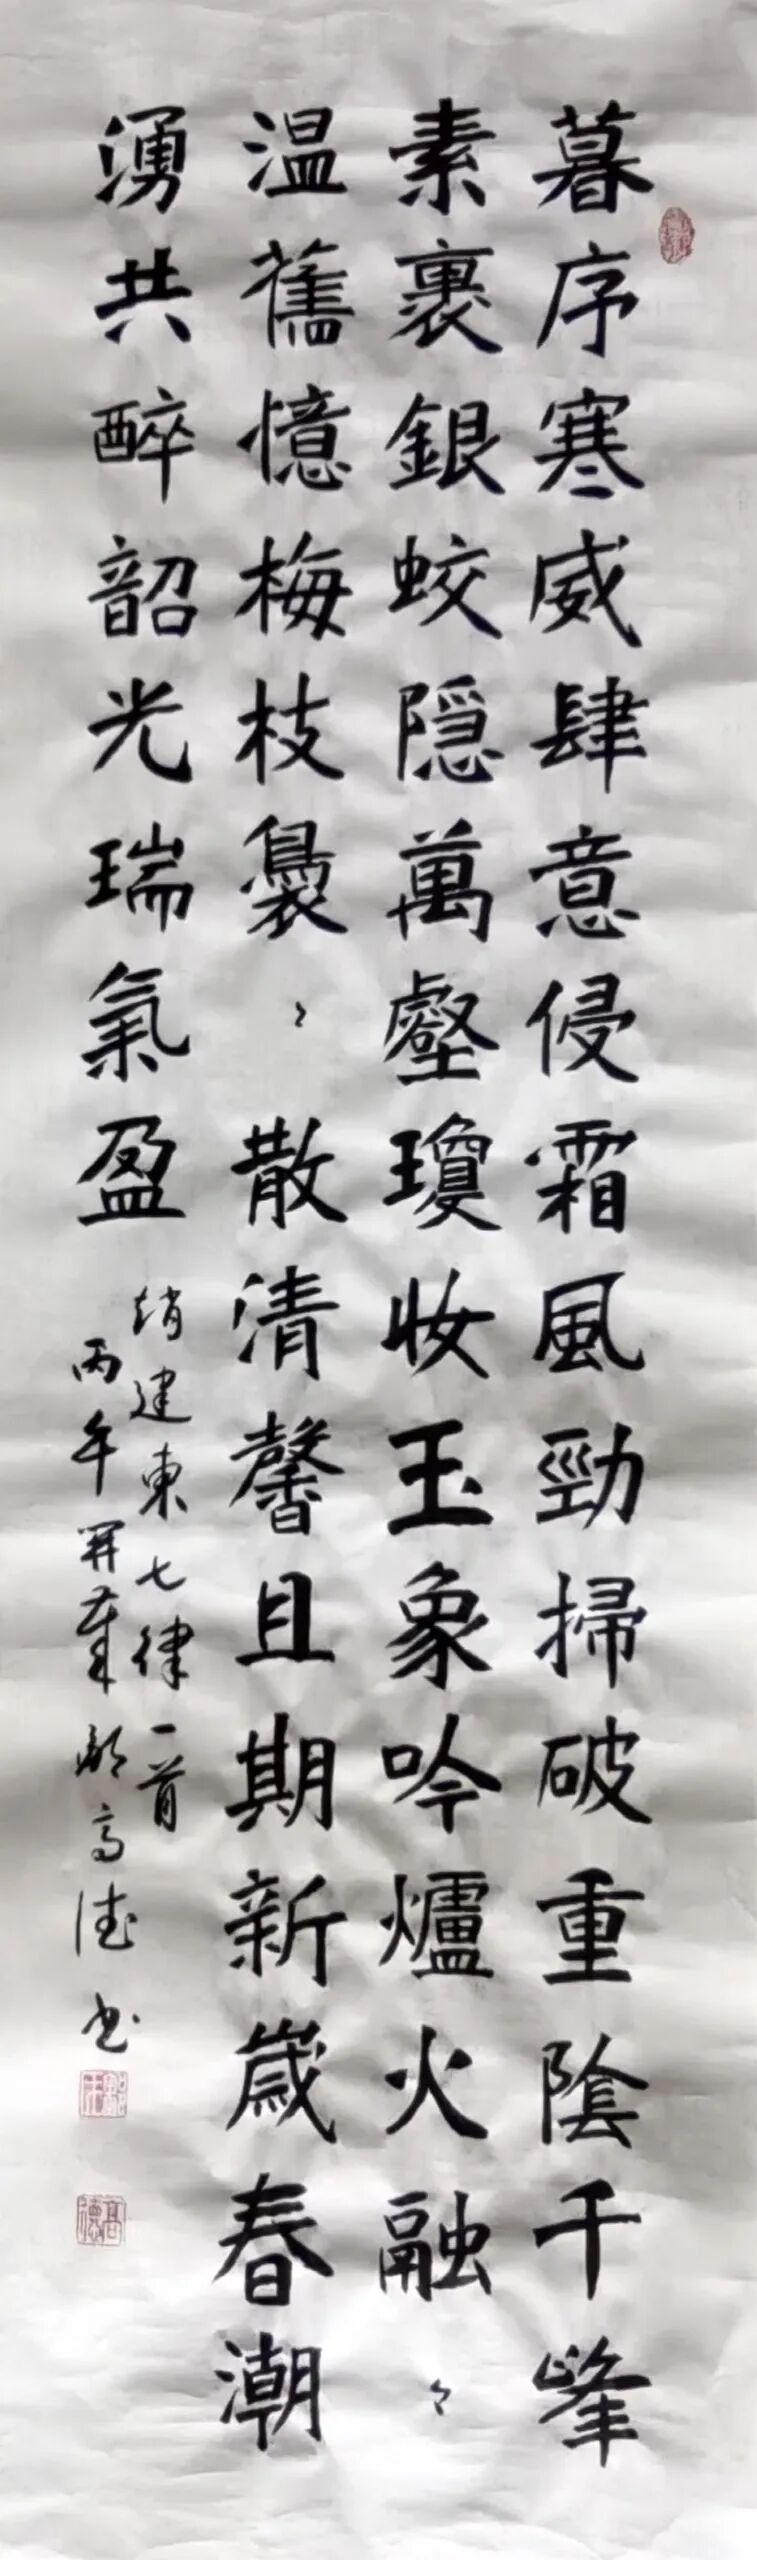 暮序寒威肆意侵霜風勁掃破重陰千峰
素裹銀蛟隱萬壑瓊妝玉象吟爐火融〻
温舊憶梅枝裊〻散清馨且期新歲春潮
湧共醉韶光瑞氣盈
趙建東七律一首
丙午開歲 高德书